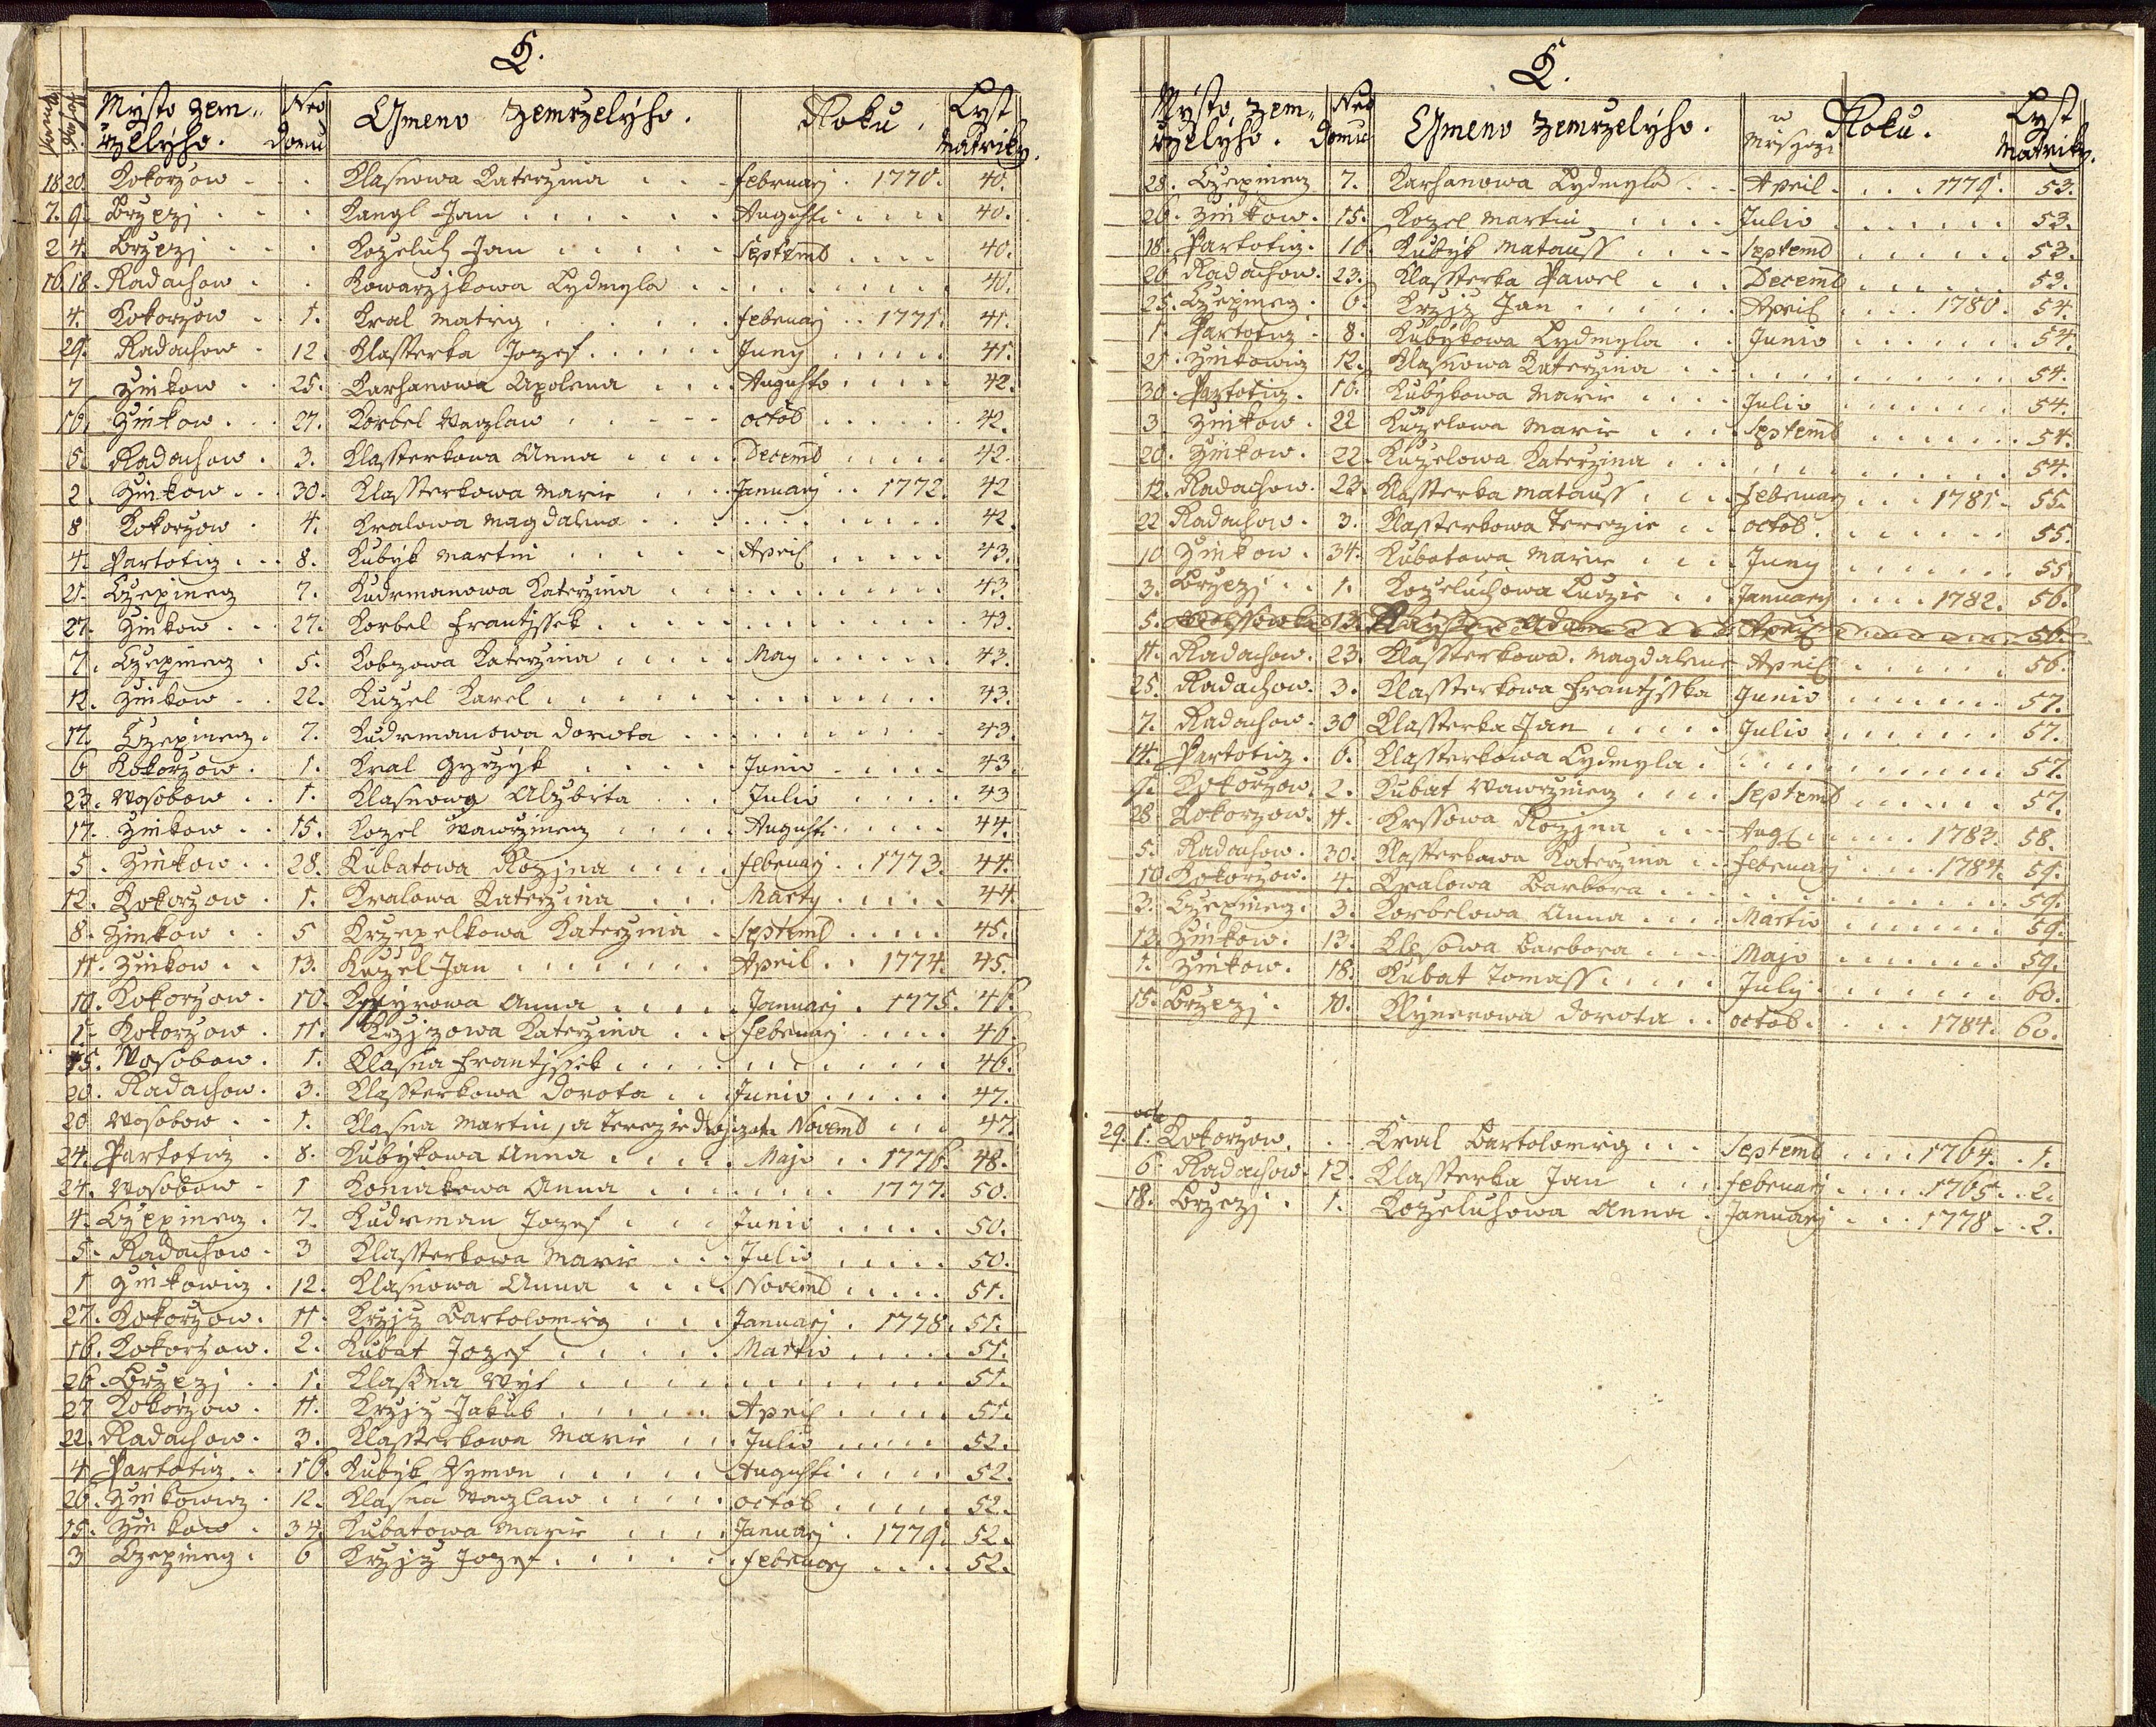 K.
Mýsto zem„ Nro Gmeno zemrzelýho. Roku. Lyst
rzelýho. Domu Matriky.
18 20 Kokorzow Klasnowa Katerzina februarj 1770. 40.
7. 9. Brzezj Kangl Jan Augusti 40.
2 4. Brzezj Kozeluh Jan Septemb 40.
16. 18. Radachow Kowarzjkowa Lydmyla 40.
4. Kokorzow 1. Kral Matieg februarj 1771. 41.
29. Radachow 12. Klassterka Jozef Juny 41.
7 Zinkow 25. Karhanowa Apolena Augusto 42.
16. Zinkow 27. Korbel Vaczlaw octob 42.
5. Radachow 3. Klassterkowa Anna Decemb 42.
2. Zinkow 30. Klassterkowa Marie Januarj 1772. 42
8 Kokorzow 4. Kralowa Magdalena 42.
4. Partoticz 8. Kubýk Martin April 43.
21. Czepinecz 7. Kudrmanowa Katerzina 43.
27. Zinkow 27. Korbel Frantjssek 43.
7. Czepinecz 5. Kobzowa Katerzina May 43.
12. Zinkow 22. Kuzel Karel 43.
17. Czepinecz 7. Kudrmanowa Dorota 43.
6 Kokorzow 1. Kral Gyrzýk Junio 43.
23. Wosobow 1. Klasnowa Alzbita Julio 43
17. Zinkow 15. Kozel Wawrzinecz Augusti 44.
5. Zinkow 28. Kubatowa Rozjna februarj 1773. 44.
12. Kokorzow 1. Kralowa Katerzina Marty 44.
8. Zinkow 5 Krzepelkowa Katerzina Septemb 45.
11. Zinkow 13. Kozel Jan April 1774. 45.
10. Kokorzow 10. Anna Januarj 1775. 46.
1. Kokorzow 11. Krzjzowa Katerzina februarj 46.
15. Wosobow 1. Klasna Frantjssek 46.
20. Radachow 3. Klassterkowa Dorota Junio 47.
20 Wosobow 1. Klasna Martin, a Terezie Dwojczata Novemb 47.
24. Partoticz 8. Kubýkowa Anna Majo 1776. 48.
24. Wosobow 1 Koniakowa Anna 1777. 50.
4. Czepinecz 7. Kudrman Jozef Junio 50.
5. Radachow 3 Klassterkowa Marie Julio 50.
1 Zinkowicz 12. Klasnowa Anna Novemb 51.
27. Kokorzow 11. Krzjz Bartolomieg Januarj 1778. 51.
16. Kokorzow 2. Kubat Jozef Martio 51.
26. Brzezj 1. Klasna Wýt 51.
27 Kokorzow 11. Krzjz Jakub April 51.
22. Radachow 3. Klassterkowa Marie Julio 52.
4 Partoticz 16. Kubýk Symon Augusti 52.
26. Zinkowicz 12. Klasna Vaczlaw octob 52.
15. Zinkow 34. Kubatowa Marie Januarj 1779. 52.
3 Czepinecz 6 Krzjz Jozef februarj 52.
K.
Mýsto zem„ Nro Gmeno zemrzelýho. w Roku. Lyst
rzelýho. Domu Mieszyczi Matriky.
28. Czepinecz 7. Karhanowa Lydmyla April 1779. 53.
26. Zinkow. 15. Kozel Martin Julio 53.
18. Partoticz. 16. Kubýk Matauss Septemb 53.
26 Radachow. 23. Klassterka Pawel Decemb 53.
25. Czepinecz. 6. Krzjz Jan April 1780. 54.
1. Partoticz 8. Kubýkowa Lydmyla Junio 54.
21. Zinkowicz 12. Klasnowa Katerzina 54.
30. Partoticz. 16. Kubýkowa Marie Julio 54.
3. Zinkow. 22 Kuzelowa Marie Septemb 54.
20. Zinkow. 22. Kuzelowa Katerzina 54.
12. Radachow. 23. Klassterka Matauss februarj 1781. 55.
22 Radachow. 3. Klassterkowa Terezie octob. 55.
10 Zinkow. 34. Kubatowa Marie Juny 55.
3. Brzezj 1. Kozeluhowa Ludzie Januarj 1782. 56.
5. 13. Adam April 56.
11. Radachow. 23. Klassterkowa Magdalena April 56.
25. Radachow. 3. Klassterkowa Frantjsska Junio 57.
7. Radachow. 30 Klassterka Jan Julio 57.
14. Partoticz. 6. Klassterkowa Lydmyla 57.
1. Kokorzow. 2. Kubat Wawrzinecz Septemb 57.
28 Kokorzow. 11. Krssowa Rozjna Aug 1783. 58.
5. Radachow. 30. Klassterkowa Katerzina februarj 1784. 59.
10. Kokorzow. 4. Kralowa Barbora 59.
3. Czepinecz. 3. Korbelowa Anna Martio 59.
13. Zinkow. 13. Klesowa Barbora Majo 59.
1. Zinkow. 18. Kubat Tomass July 60.
15. Brzezj. 10. Klýnerowa Dorota octob. 1784. 60.
octo
29. 1. Kokorzow. Kral Bartolomieg Septemb 1764. 1.
6. Radachow. 12. Klassterka Jan februarj 1765. 2.
18. Brzezj. 1. Kozeluhowa Anna Januarj 1778. 2.